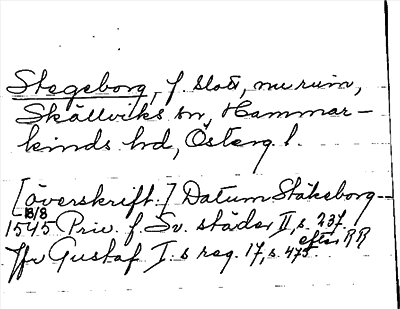 Stegeborg, f. slott, nu ruin,
Skällviks sn, Hammar-
kinds hd, Österg. l.
[Överskrift.] Datum Stäkeborg
18/8
1545 Priv. f. Sv. städer II, s. 237
efter RR
Jfr Gustaf I:s reg. 17, s. 475